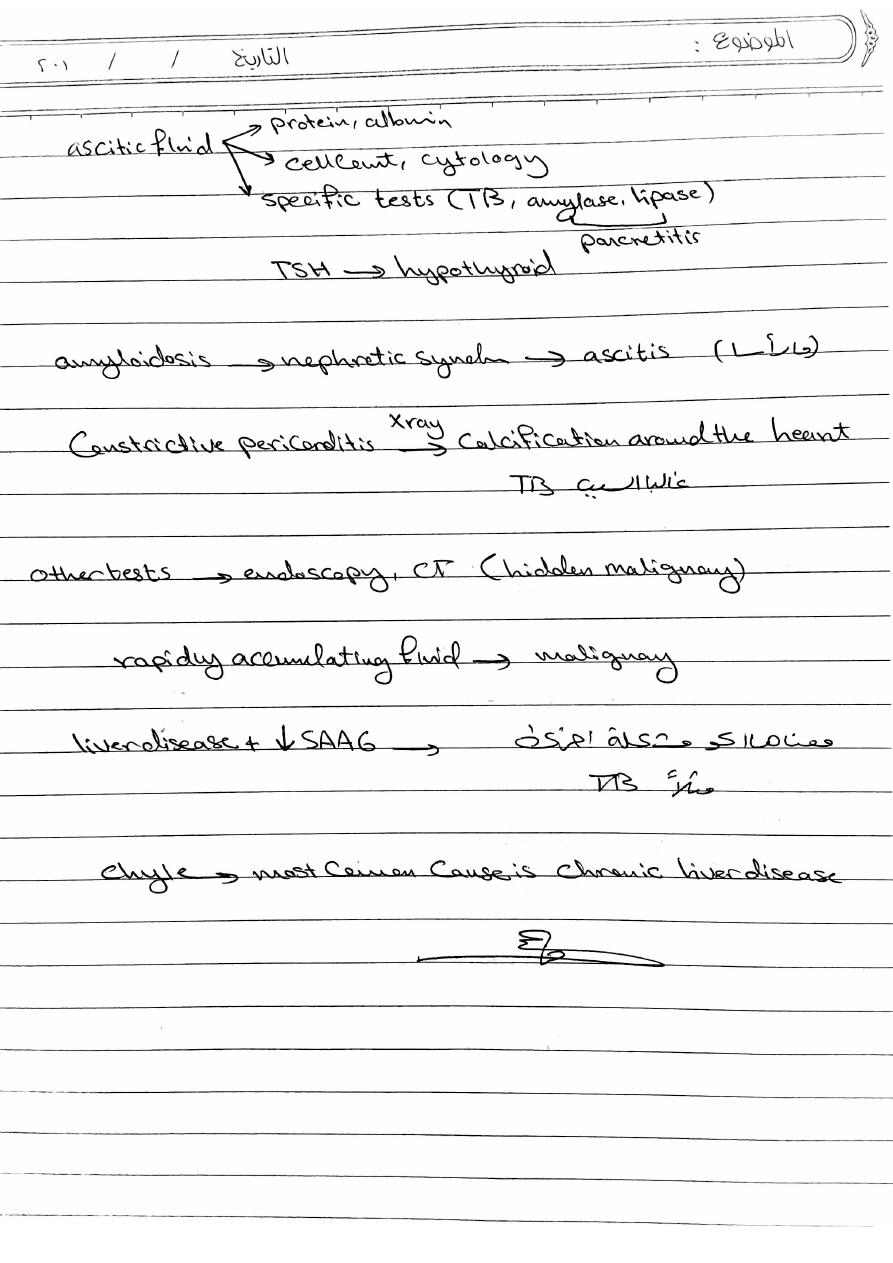 الموضوع :
التاريخ / / ٢٠١
protein, albumin
ascitic fluid
cell count, cytology
specific tests (TB, amylase, lipase)
pancretitis
TSH → hypothyroid
amyloidosis → nephretic syndrm → ascitis (غالباً)
xray
Constrictive pericarditis → Calcification around the heart
غالبا السبب TB
other tests → endoscopy, CT (hidden malignacy)
rapidly accumulating fluid → malignacy
liver disease + ↓ SAAG → مشكلة
مثلاً TB
chyle → most Common Cause is chronic liver disease